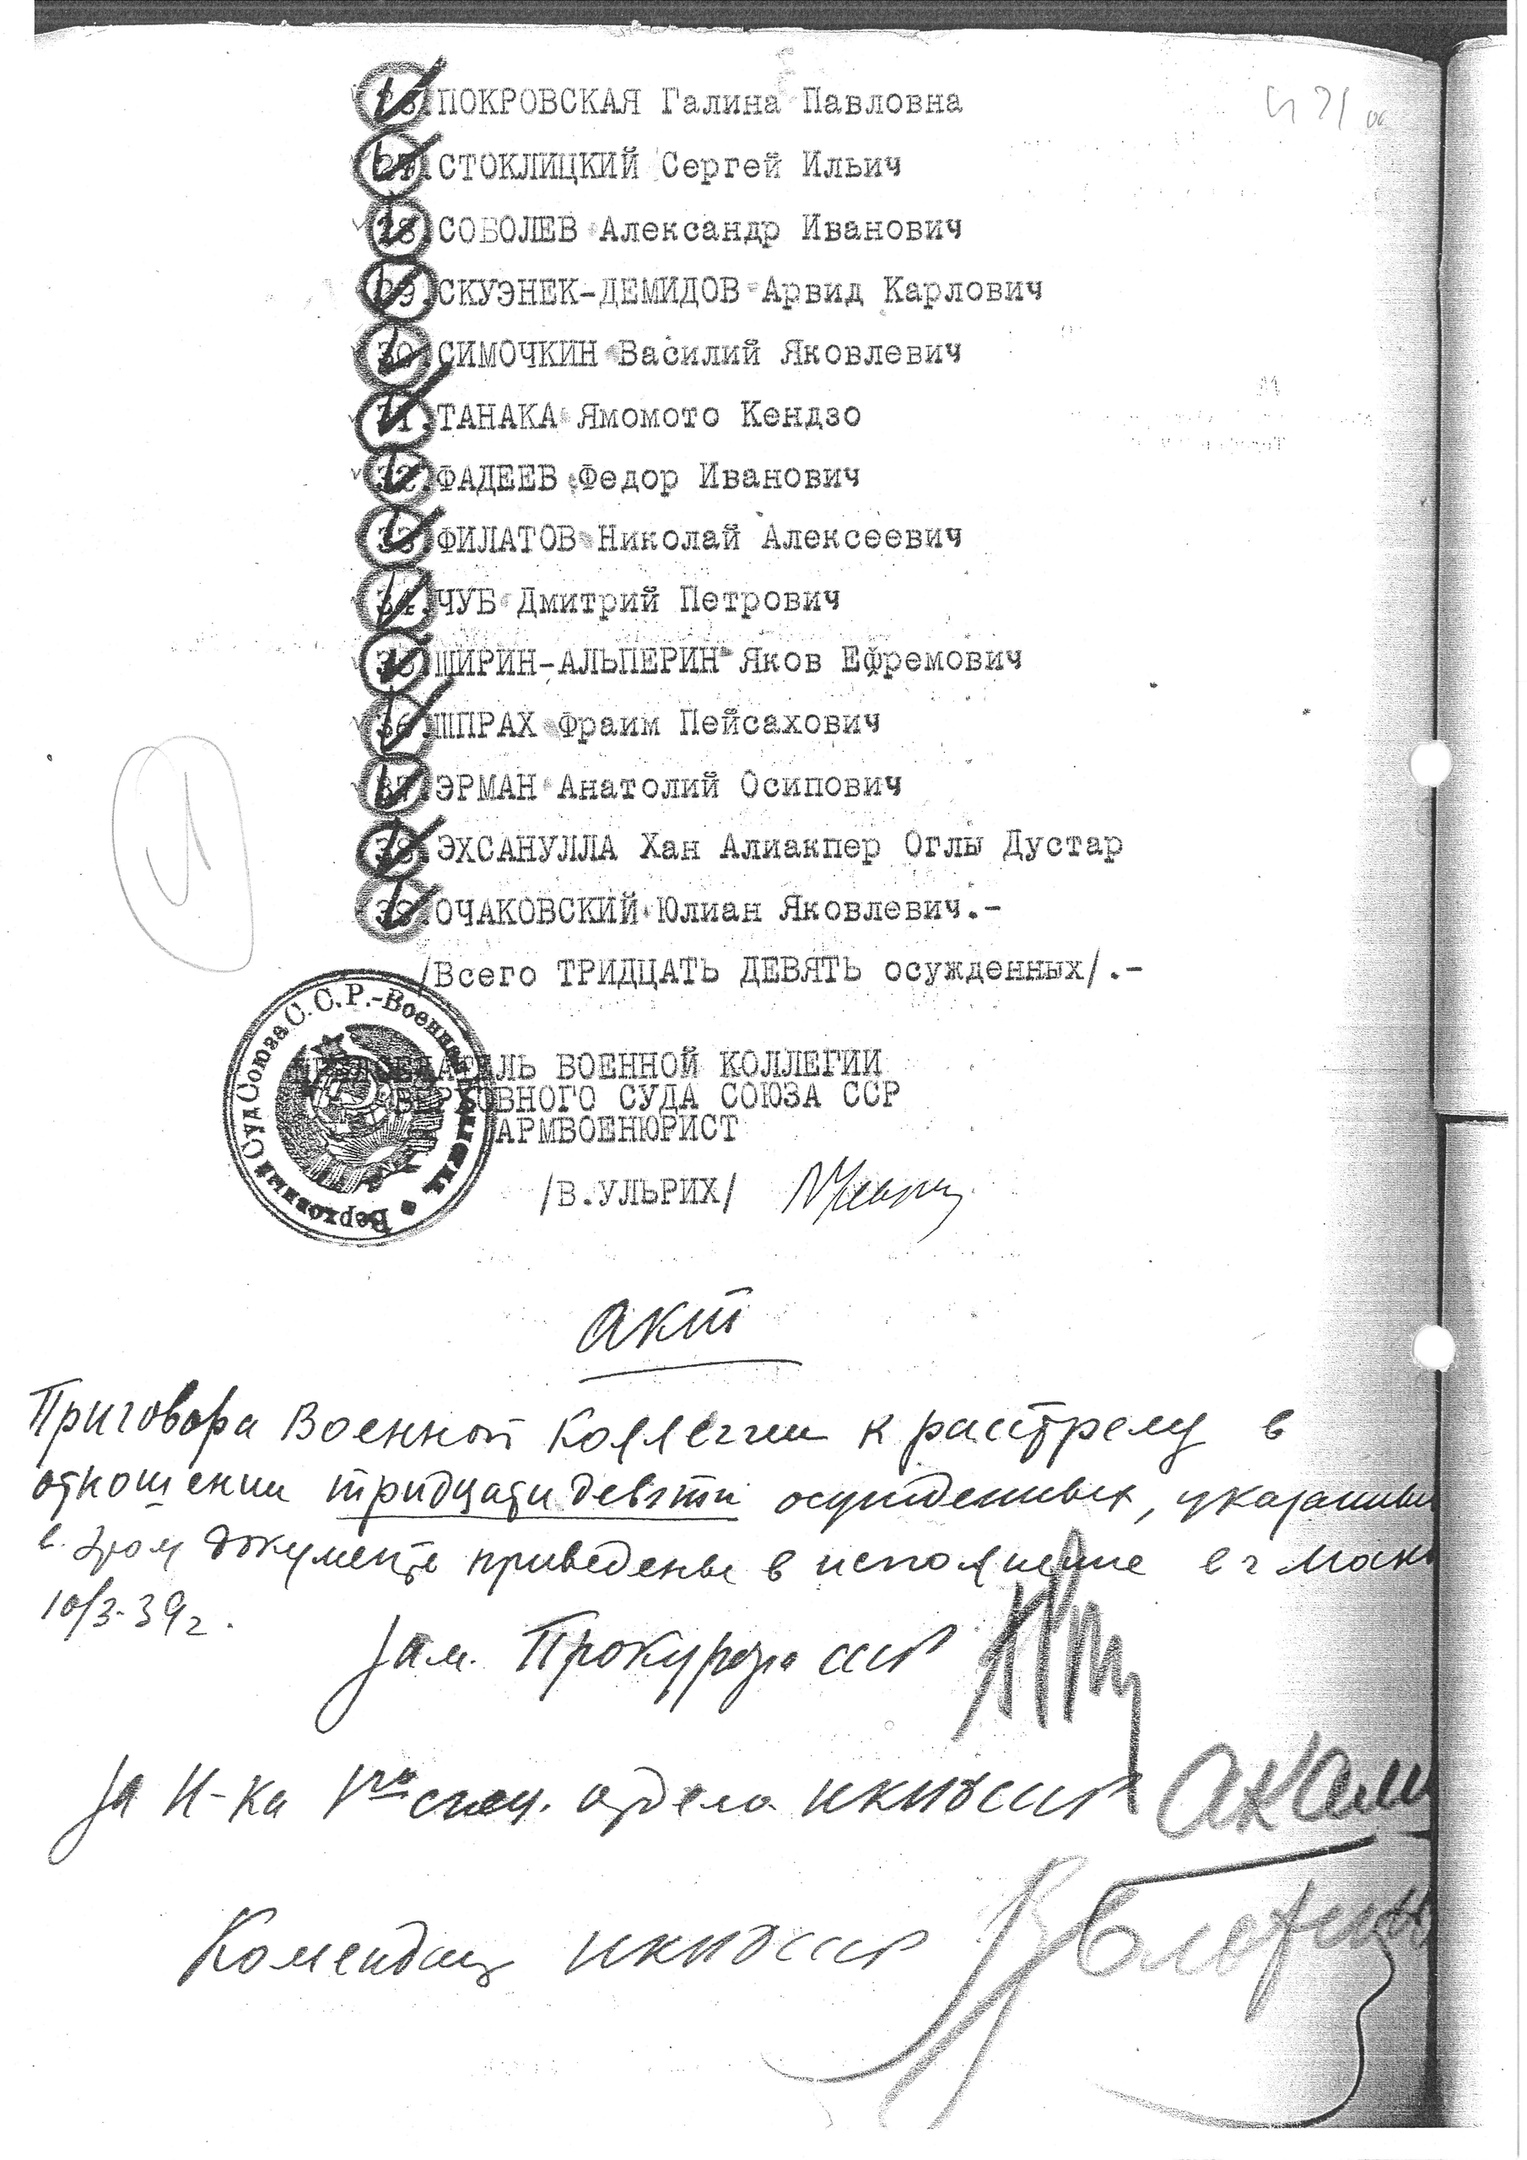 26.ПОКРОВСКАЯ Галина Павловна
27.СТОКЛИЦКИЙ Сергей Ильич
28.СОБОЛЕВ Александр Иванович
29.СКУЭНЕК-ДЕМИДОВ Арвид Карлович
30.СИМОЧКИН Василий Яковлевич
31.ТАНАКА Ямомото Кендзо
32.ФАДЕЕВ Федор Иванович
33.ФИЛАТОВ Николай Алексеевич
34.ЧУБ Дмитрий Петрович
35.ШИРИН-АЛЬПЕРИН Яков Ефремович
36.ШПРАХ Фраим Пейсахович
37.ЭРМАН Анатолий Осипович
38.ЭХСАНУЛЛА Хан Алиакпер Оглы Дустар
39.ОЧАКОВСКИЙ Юлиан Яковлевич.-
/Всего ТРИДЦАТЬ ДЕВЯТЬ осужденных/.-
Верховный Суд Союза С.С.Р.-Военная Коллегия
ПРЕДСЕДАТЕЛЬ ВОЕННОЙ КОЛЛЕГИИ
ВЕРХОВНОГО СУДА СОЮЗА ССР
АРМВОЕНЮРИСТ
/В.УЛЬРИХ/
Акт
Приговора Военной Коллегии к расстрелу в
отношении тридцати девяти осужденных, указанных
в этом документе приведены в исполнение в г Моск
10/3-39г.
Зам. Прокурора СССР
За Н-ка 1го спец. отдела НКВД СССР
Комендант НКВД СССР